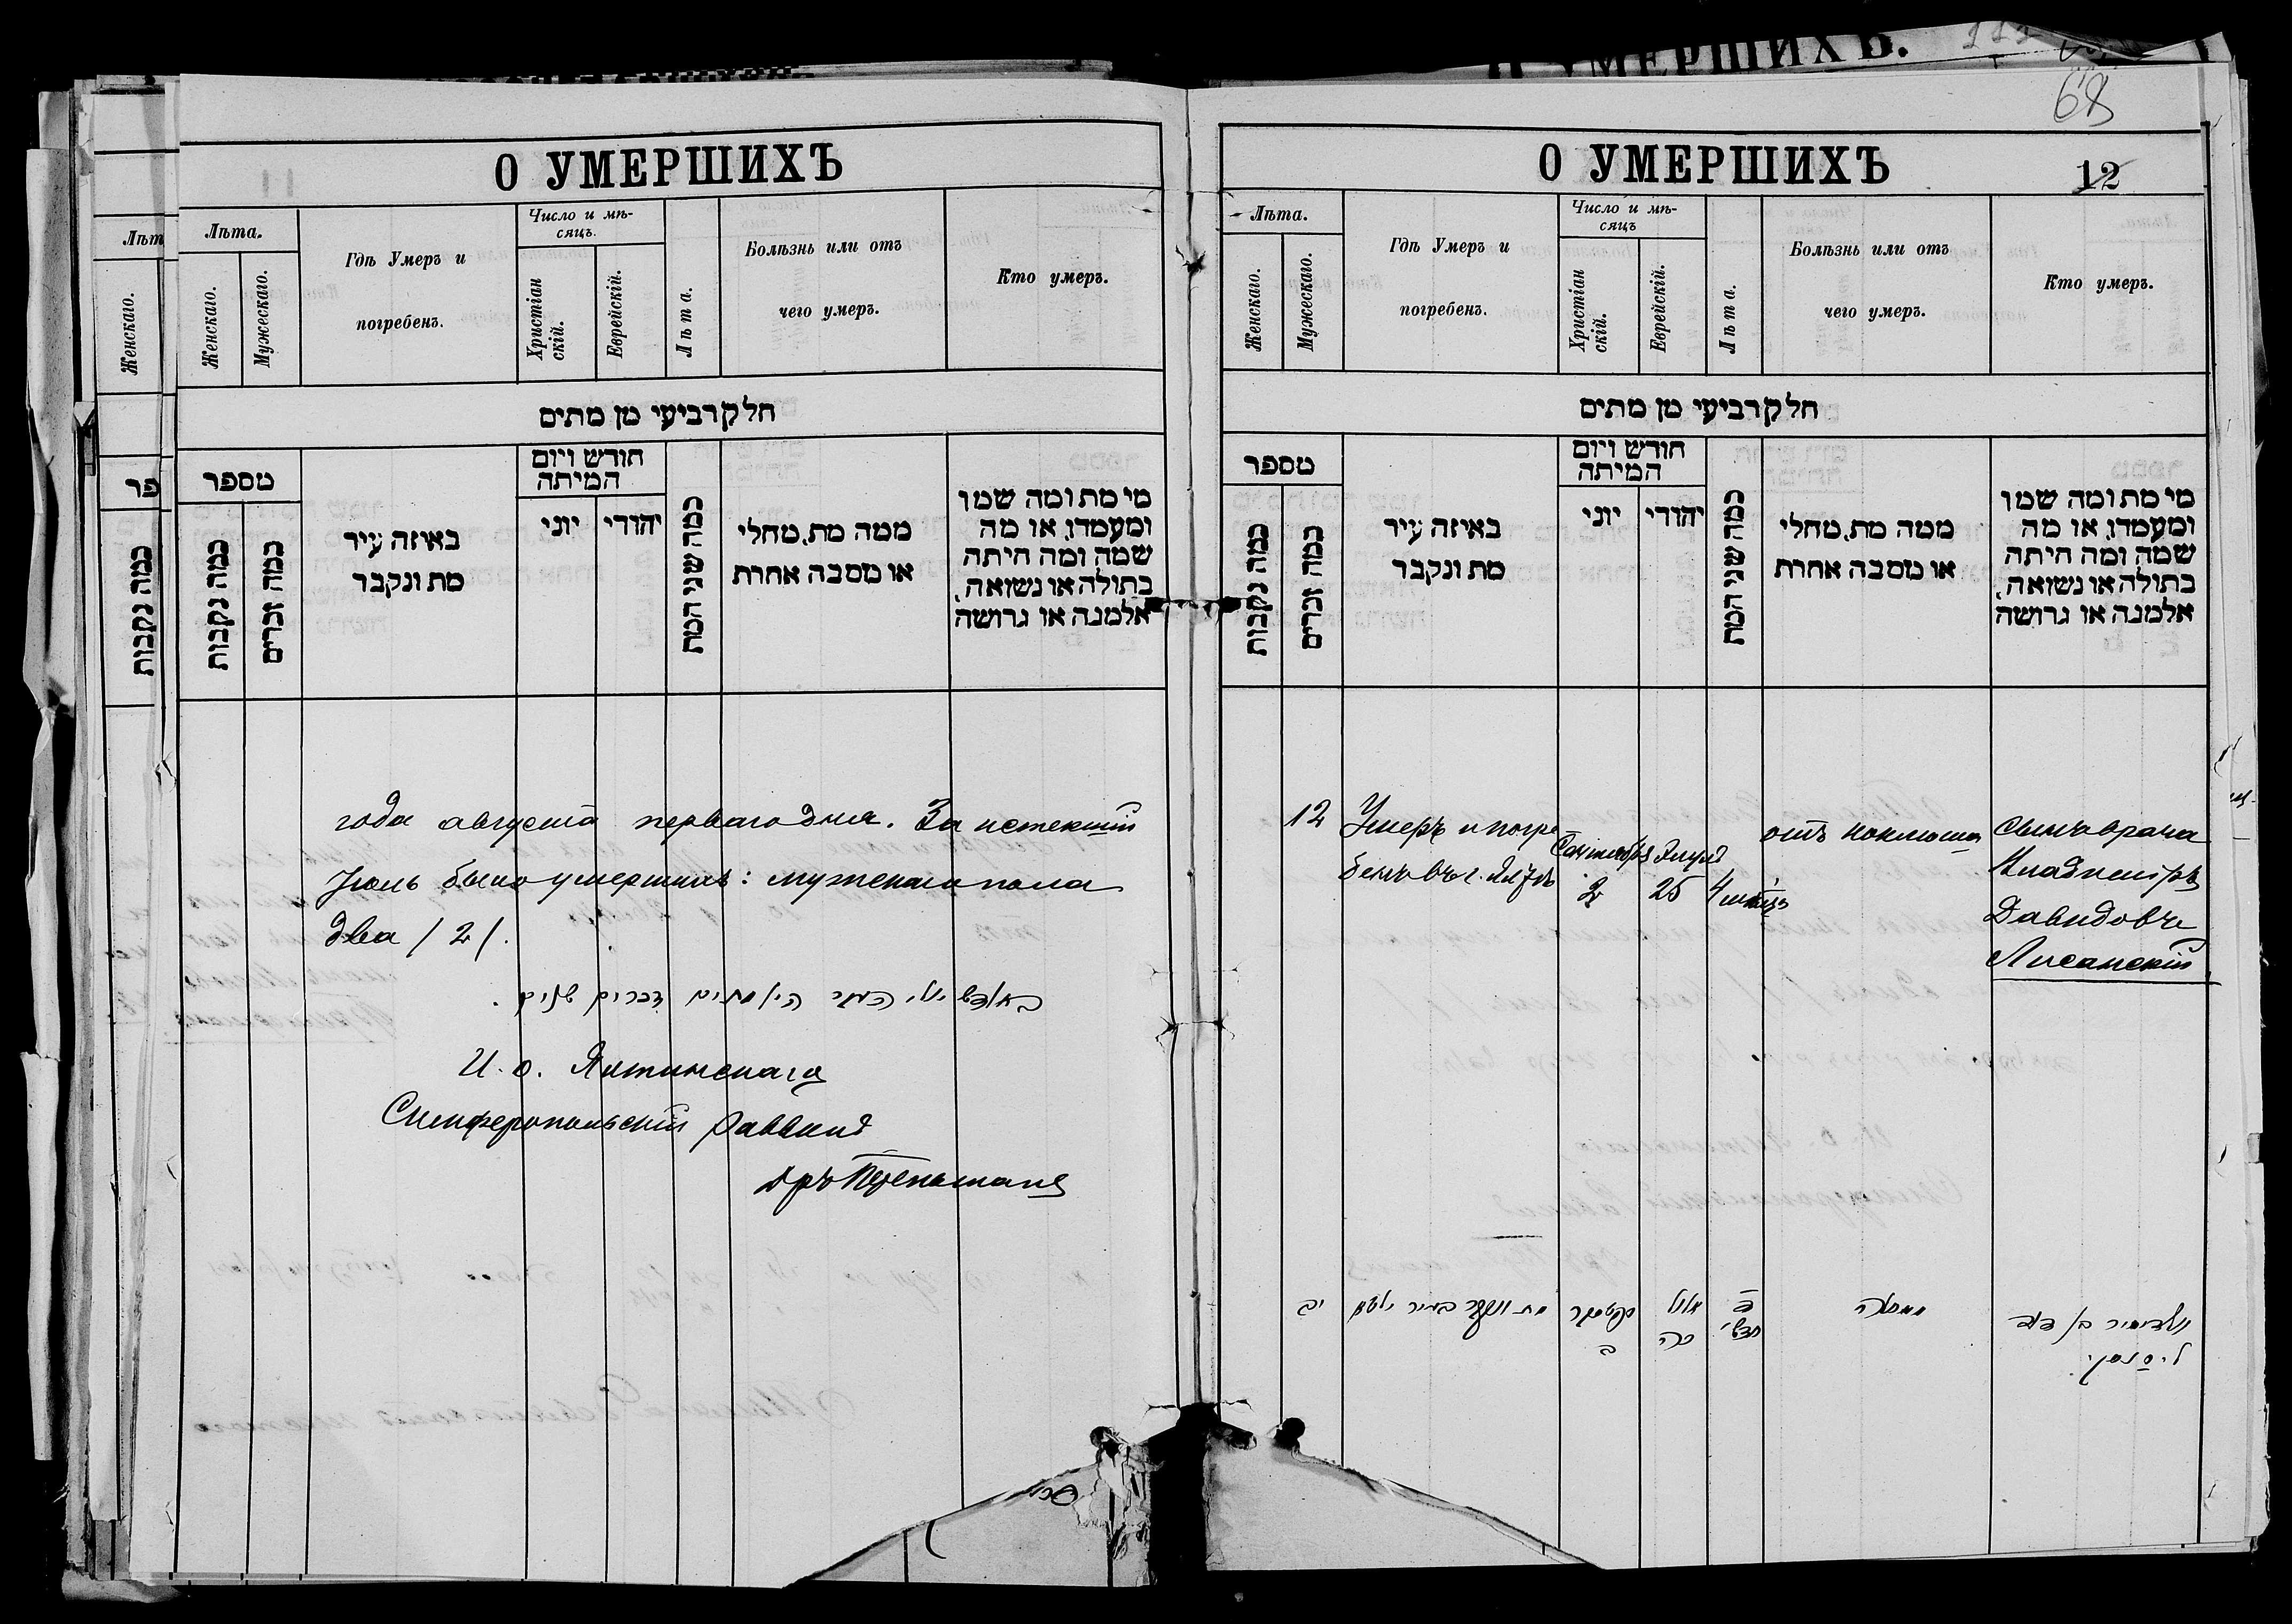 О УМЕРШИХЪ.
68
О УМЕРШИХЪ
Лѣта.
Женскаго.
Мужескаго.
Гдѣ Умеръ и
погребенъ.
Число и мѣ-
сяцъ.
Христіан
скій.
Еврейскій.
Лѣта.
Болѣзнь или отъ
чего умеръ.
Кто умеръ.
חלק רביעי מן מתים
מספר
כמה נקבות
כמה זכרים
באיזה עיר
מת ונקבר
חודש ויום
המיתה
יוני
יהודי
כמה שני המת
ממה מת, מחלי
או מסבה אחרת
מי מת ומה שמו
ומעמדו, או מה
שמה ומה היתה
בתולה או נשואה,
אלמנה או גרושה
года августа перваго дня. За истекшій
Іюль было умершихъ: мужескаго пола
два /2/.
И. о. Ялтинскаго
Симферопольскій Раввинъ
О УМЕРШИХЪ
12
Лѣта.
Женскаго.
Мужескаго.
Гдѣ Умеръ и
погребенъ.
Число и мѣ-
сяцъ
Христіан
скій.
Еврейскій.
Лѣта.
Болѣзнь или отъ
чего умеръ.
Кто умеръ.
חלק רביעי מן מתים
מספר
כמה נקבות
כמה זכרים
באיזה עיר
מת ונקבר
חודש ויום
המיתה
יוני
יהודי
כמה שני המת
ממה מת, מחלי
או מסבה אחרת
מי מת ומה שמו
ומעמדו, או מה
שמה ומה היתה
בתולה או נשואה,
אלמנה או גרושה
12
Умеръ и погре
бенъ въ г. Ялтѣ
Сентября
2
Элулъ
25
4 мѣсяц
отъ коклюша
сынъ врача
Владиміръ
Давидовъ
Лисанскій
יב
מת ונקבר בעיר יאלטא
ב
אלול
כה
ד
חדשי